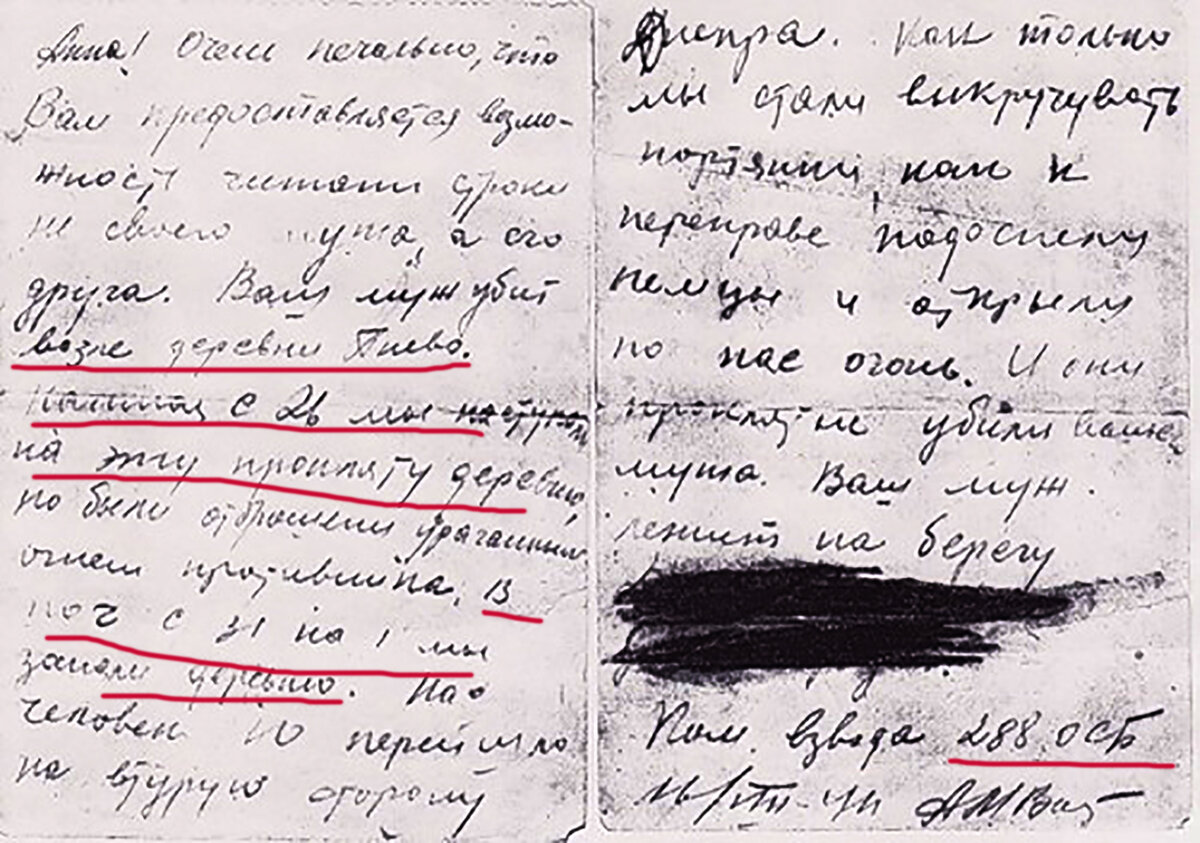 Анна! Очень печально, что
Вам предоставляется возмо-
жность читати строки
не своего мужа, а его
друга. Ваш муж убит
возле деревни Пнево.
с 26 мы наступали
на эту прокляту деревню,
но были отброшени ураганным
огнем противника. В
ноч с 31 на 1 мы
заняли деревню. Нас
человек 10 перейшло
на втурую сторону
Днепра. Как только
мы стали выкручувать
портянки, как к
переправе подоспели
немцы и открыли
по нас огонь. И они
проклятие убили вашего
мужа. Ваш муж
лежит на берегу
Ком. взвода 288 ОСБ